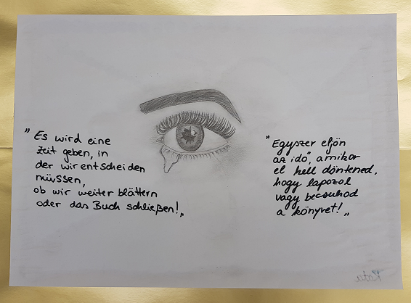 „Es wird eine
Zeit geben, in
der wir entscheiden
müssen,
ob wir weiter blättern
oder das Buch schließen!„
"Egyszer eljön
az idő, amikor
el kell döntened,
hogy lapozol
vagy becsukod
a könyvet!„